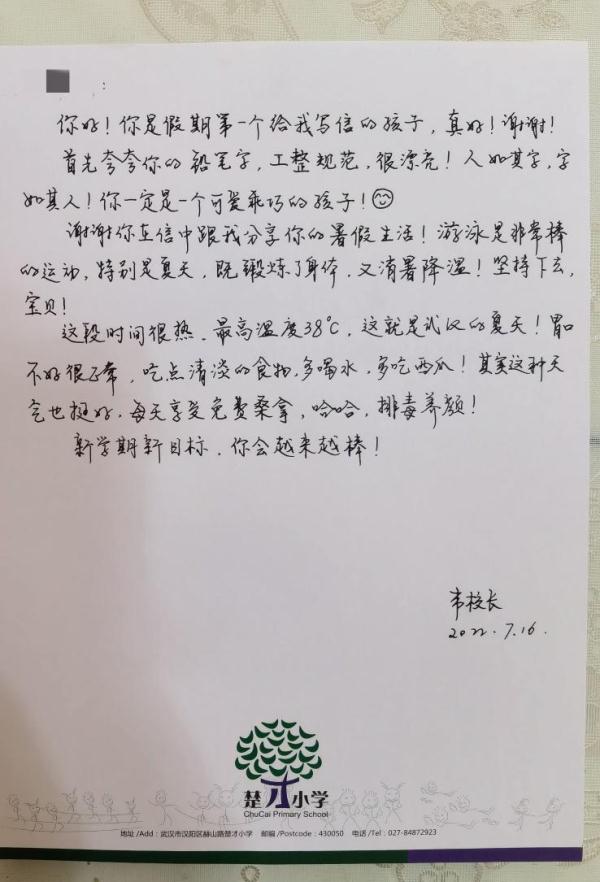 :
你好！你是假期第一个给我写信的孩子，真好！谢谢！
首先夸夸你的铅笔字，工整规范，很漂亮！人如其字，字
如其人！你一定是一个可爱乖巧的孩子！
谢谢你在信中跟我分享你的暑假生活！游泳是非常棒
的运动，特别是夏天，既锻炼了身体，又消暑降温！坚持下去，
宝贝！
这段时间很热，最高温度38℃，这就是武汉的夏天！胃口
不好很正常，吃点清淡的食物，多喝水，多吃西瓜！其实这种天
气也挺好，每天享受免费桑拿，哈哈，排毒养颜！
新学期新目标，你会越来越棒！
韦校长
2022.7.16.
楚才小学
ChuCai Primary School
地址/Add：武汉市汉阳区赫山路楚才小学 邮编/Postcode：430050 电话/Tel：027-84872923